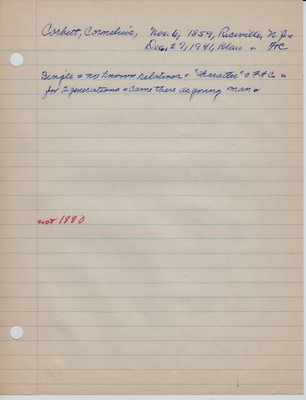 Corbett, Cornelius, Nov. 6, 1859, Riceville, N.J.
Dec. 27, 1941, Blair - FC
Single - no known relatives - "Character" of FC -
for 2 generations - Came there as young man -
not 1880